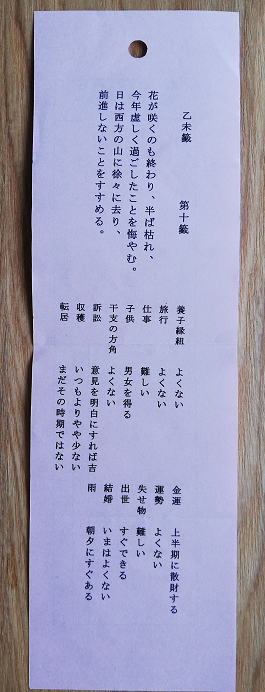 乙未籤 第十籤
花が咲くのも終わり、半ば枯れ、
今年虚しく過ごしたことを悔やむ。
日は西方の山に徐々に去り、
前進しないことをすすめる。
養子縁組 よくない
旅行 よくない
仕事 難しい
子供 男女を得る
干支の方角 よくない
訴訟 意見を明白にすれば吉
収穫 いつもよりやや少ない
転居 まだその時期ではない
金運 上半期に散財する
運勢 よくない
失せ物 難しい
出世 すぐできる
結婚 いまはよくない
雨 朝夕にすぐある